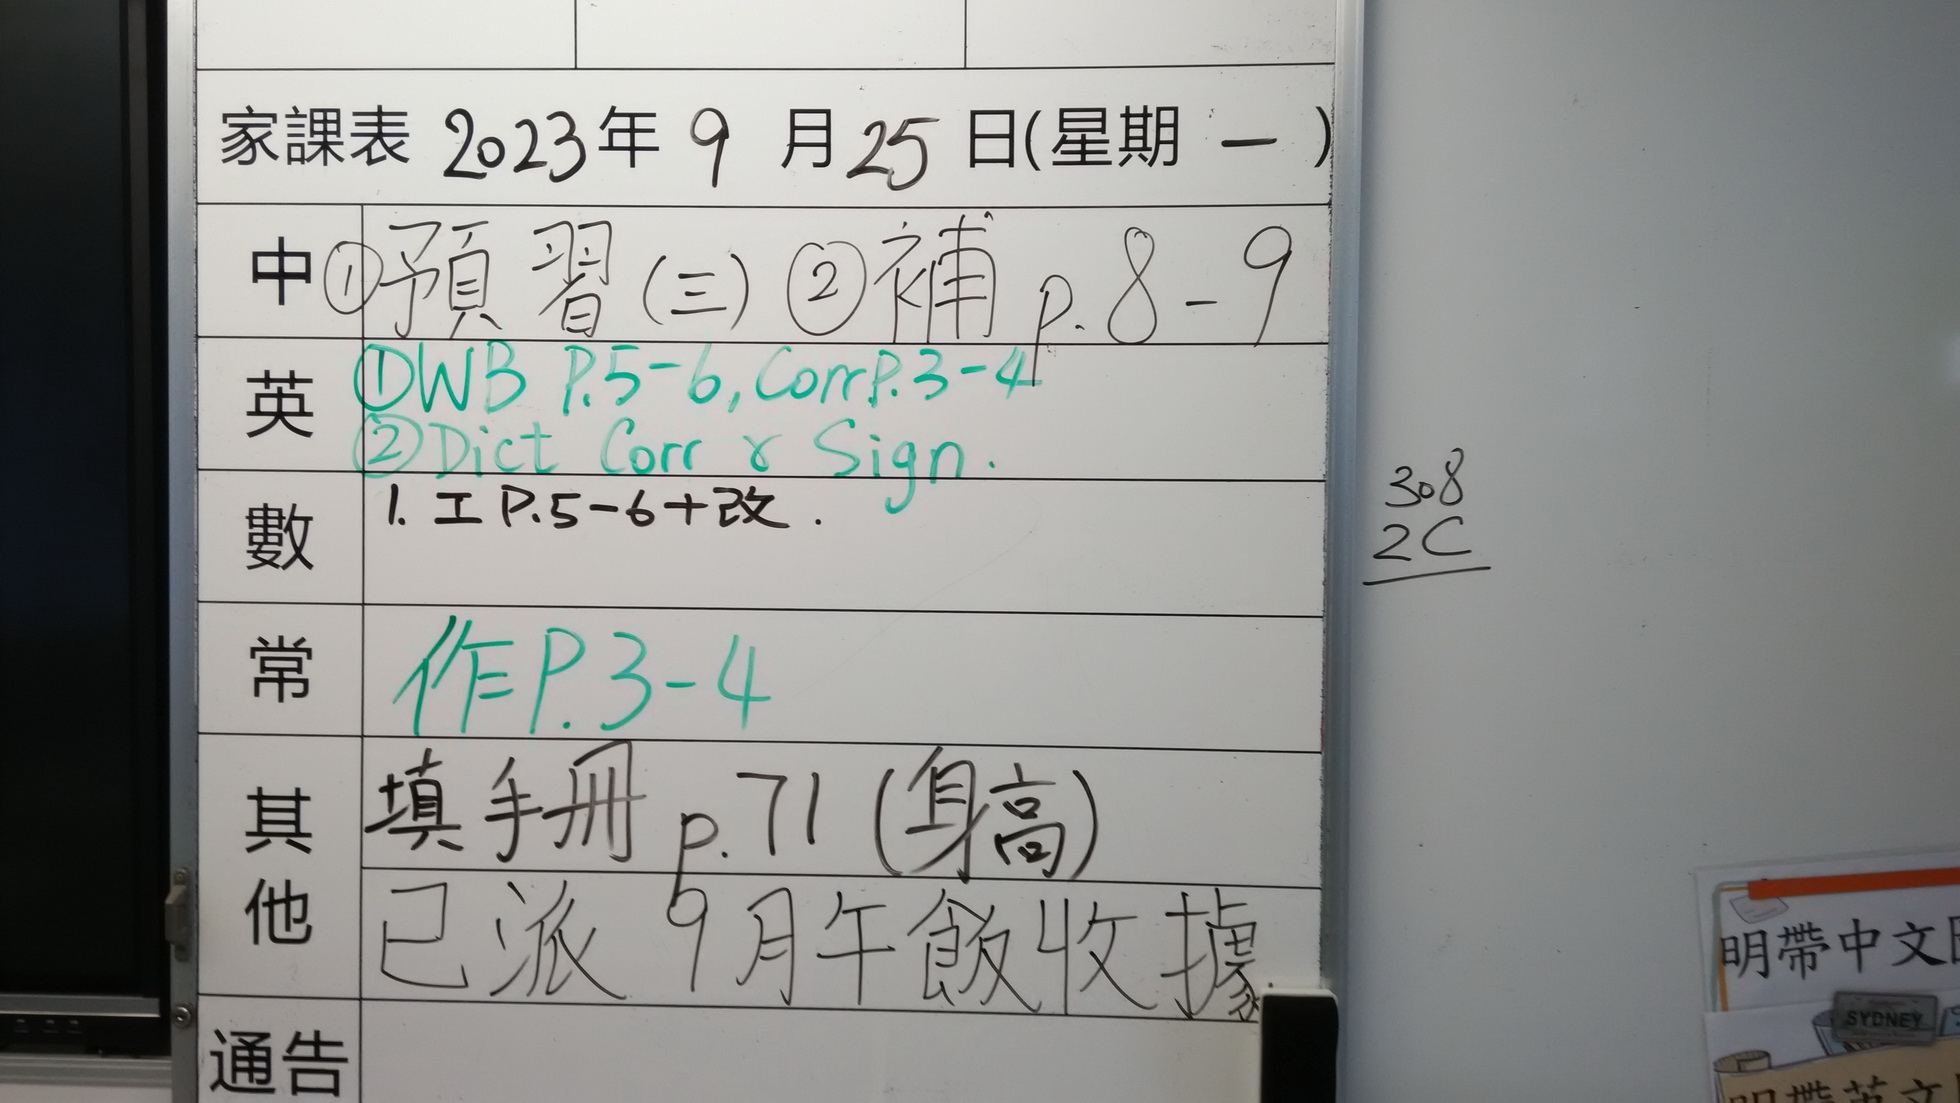 家課表 2023年 9 月 25 日(星期 一 )
中 ①預習(三) ②補 p.8-9
英 ①WB P.5-6, Corr P.3-4
②Dict Corr & Sign.
數 1. 工 P.5-6+改.
常 作P.3-4
其他 填手冊 p.71 (身高)
已派 9月午飯收據
通告
308
2C
明帶中文
SYDNEY
明帶英文